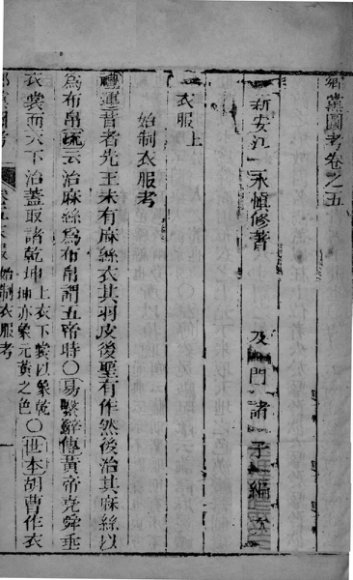 鄉黨圖考卷之五
新安江　永慎修著　及門諸子編次
衣服上
始制衣服考
禮運昔者先王未有麻絲衣其羽皮後聖有作然後治其麻絲以
為布帛疏云治麻絲為布帛謂五帝時〇易繫辭傳黃帝堯舜垂
衣裳而天下治蓋取諸乾坤上衣下裳以象乾坤亦象元黃之色〇世本胡曹作衣
鄉黨圖考
始制衣服考
一